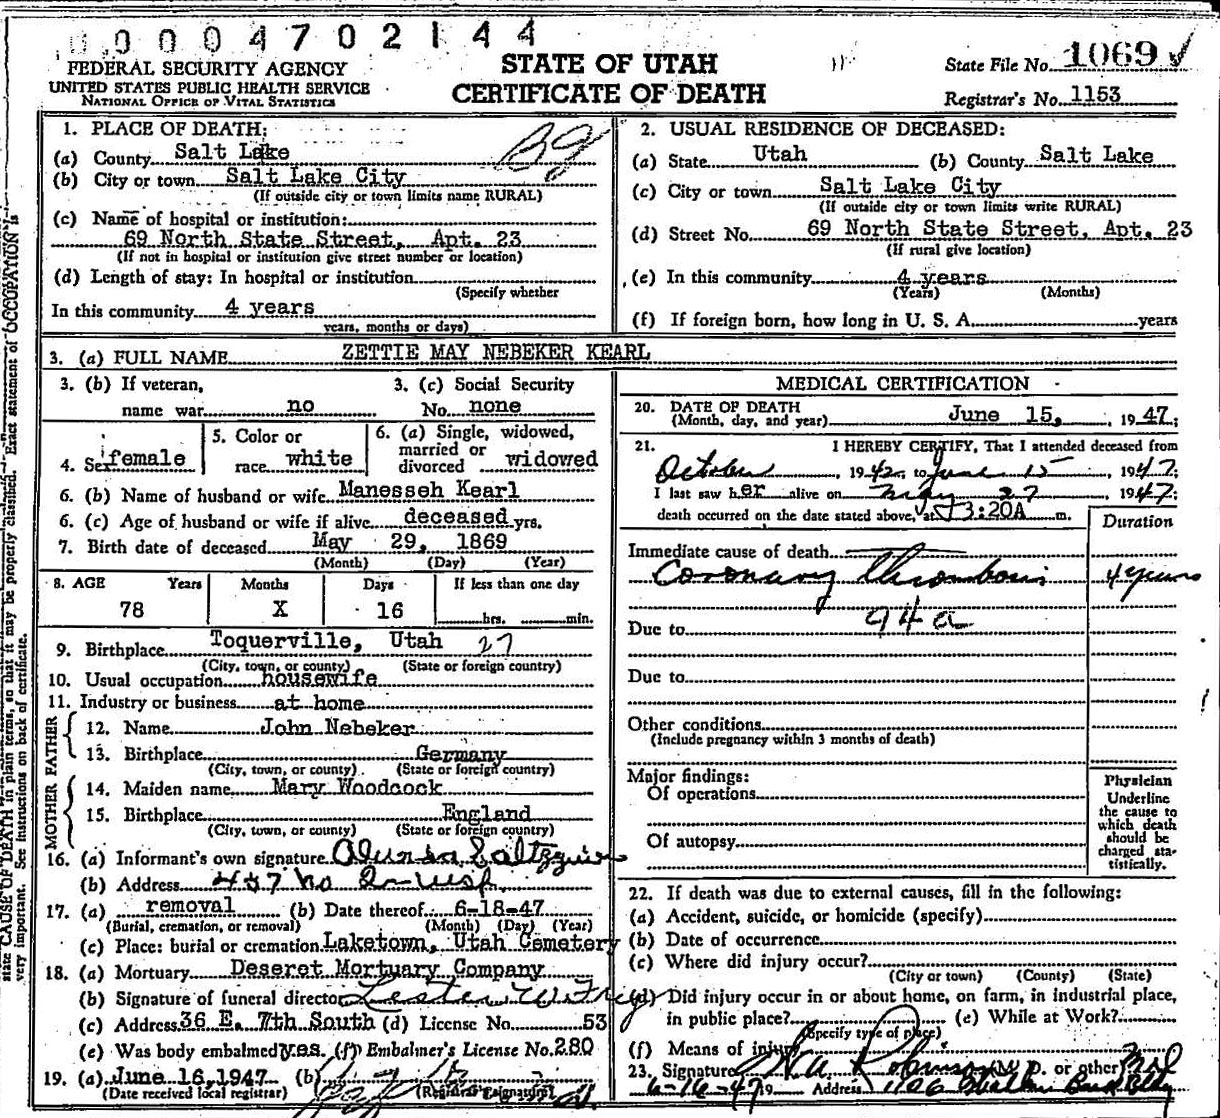 0004702144
FEDERAL SECURITY AGENCY
UNITED STATES PUBLIC HEALTH SERVICE
NATIONAL OFFICE OF VITAL STATISTICS
STATE OF UTAH
CERTIFICATE OF DEATH
State File No. 1069
Registrar's No. 1153
1. PLACE OF DEATH:
(a) County Salt Lake
(b) City or town Salt Lake City
(If outside city or town limits name RURAL)
(c) Name of hospital or institution:
69 North State Street, Apt. 23
(If not in hospital or institution give street number or location)
(d) Length of stay: In hospital or institution
(Specify whether
In this community 4 years
years, months or days)
2. USUAL RESIDENCE OF DECEASED:
(a) State Utah (b) County Salt Lake
(c) City or town Salt Lake City
(If outside city or town limits write RURAL)
(d) Street No. 69 North State Street, Apt. 23
(If rural give location)
(e) In this community 4 years
(Years) (Months)
(f) If foreign born, how long in U. S. A. years
3. (a) FULL NAME ZETTIE MAY NEBEKER KEARL
3. (b) If veteran,
name war no
3. (c) Social Security
No. none
4. Sex female
5. Color or
race white
6. (a) Single, widowed,
married or
divorced widowed
6. (b) Name of husband or wife Manesseh Kearl
6. (c) Age of husband or wife if alive deceased yrs.
7. Birth date of deceased May 29, 1869
(Month) (Day) (Year)
8. AGE Years Months Days If less than one day
78 X 16 hrs. min.
9. Birthplace Toquerville, Utah 27
(City, town, or county) (State or foreign country)
10. Usual occupation housewife
11. Industry or business at home
FATHER
12. Name John Nebeker
13. Birthplace Germany
(City, town, or county) (State or foreign country)
MOTHER
14. Maiden name Mary Woodcock
15. Birthplace England
(City, town, or county) (State or foreign country)
16. (a) Informant's own signature
(b) Address
17. (a) removal (b) Date thereof 6-18-47
(Burial, cremation, or removal) (Month) (Day) (Year)
(c) Place: burial or cremation Laketown, Utah Cemetery
18. (a) Mortuary Deseret Mortuary Company
(b) Signature of funeral director
(c) Address 36 E. 7th South (d) License No. 53
(e) Was body embalmed yes. (f) Embalmer's License No. 280
19. (a) June 16, 1947 (b)
(Date received local registrar) (Registrar's signature)
MEDICAL CERTIFICATION
20. DATE OF DEATH
(Month, day, and year) June 15, 1947;
21. I HEREBY CERTIFY, That I attended deceased from
October 1942, to June 15 1947;
I last saw her alive on May 27 1947;
death occurred on the date stated above, at 3:20A m.
Duration
Immediate cause of death
Coronary Thrombosis 4 years
Due to 94a
Due to
Other conditions
(Include pregnancy within 3 months of death)
Major findings:
Of operations
Of autopsy
Physician
Underline
the cause to
which death
should be
charged sta-
tistically.
22. If death was due to external causes, fill in the following:
(a) Accident, suicide, or homicide (specify)
(b) Date of occurrence
(c) Where did injury occur?
(City or town) (County) (State)
(d) Did injury occur in or about home, on farm, in industrial place,
in public place? (e) While at Work?
(Specify type of place)
(f) Means of injury
23. Signature (M. D. or other)
6-16-47 19 Address
state CAUSE OF DEATH in plain terms, so that it may be properly classified. Exact statement of OCCUPATION is
very important. See instructions on back of certificate.